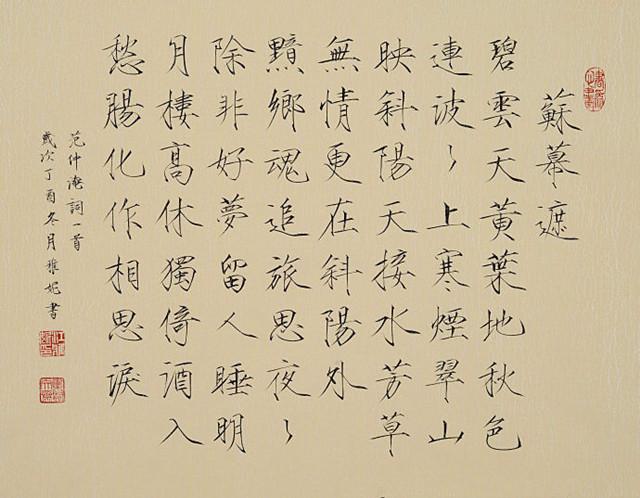 蘇幕遮
碧雲天黃葉地秋色
連波〻上寒煙翠山
映斜陽天接水芳草
無情更在斜陽外
黯鄉魂追旅思夜〻
除非好夢留人睡明
月樓高休獨倚酒入
愁腸化作相思淚
范仲淹詞一首
歲次丁酉冬月雅妮書